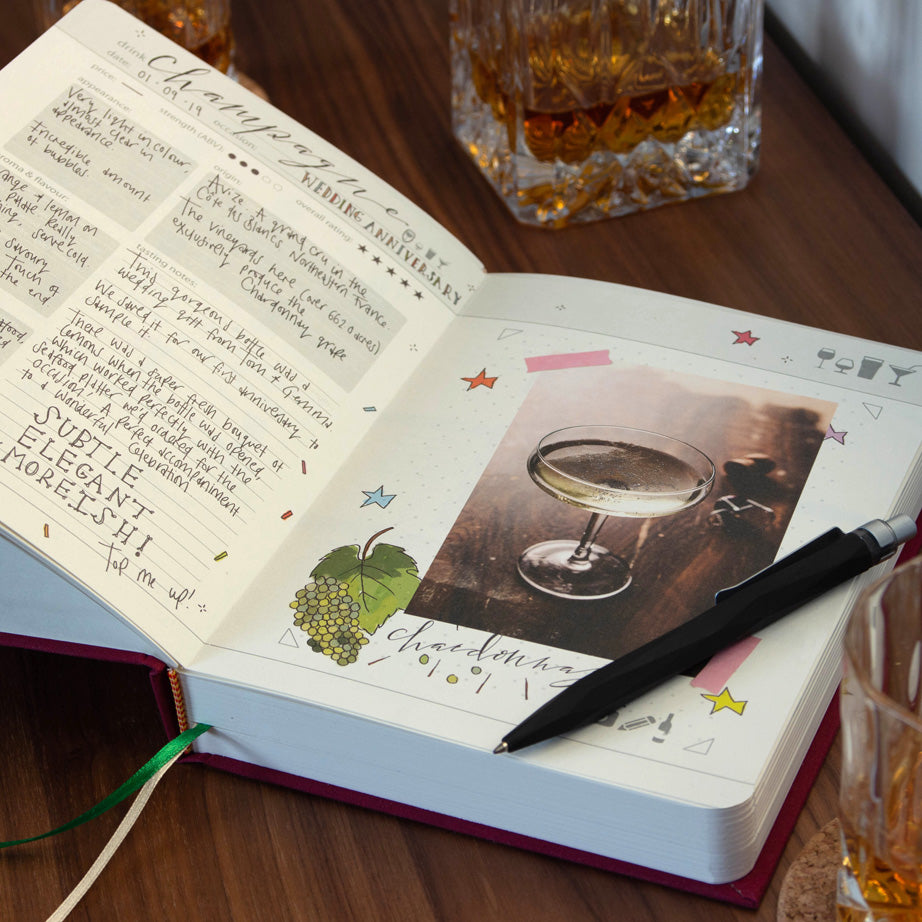 drink: Champagne
date: 01.09.19
price: —
strength (ABV):
occasion: WEDDING ANNIVERSARY
overall rating:
appearance:
Very light in colour,
almost clear in
appearance.
Incredible amount
of bubbles.
origin:
Avize. A grand cru in the
Côte des Blancs Northeastern France.
The vineyards here (over 662.0 acres)
exclusively produce the
Chardonnay grape
aroma & flavour:
& lemon on
palate. Really
serve cold.
savoury
touch of
the end
food,
tasting notes:
This gorgeous bottle was a
wedding gift from Tom & Gemma
We saved it for our first anniversary to
sample it.
There was a super fresh bouquet of
lemons when the bottle was opened,
which worked perfectly with the
seafood platter we'd ordered for the
occasion. A perfect accompaniment
to a wonderful celebration
SUBTLE
ELEGANT
MOREISH!
Top me up!
chardonnay